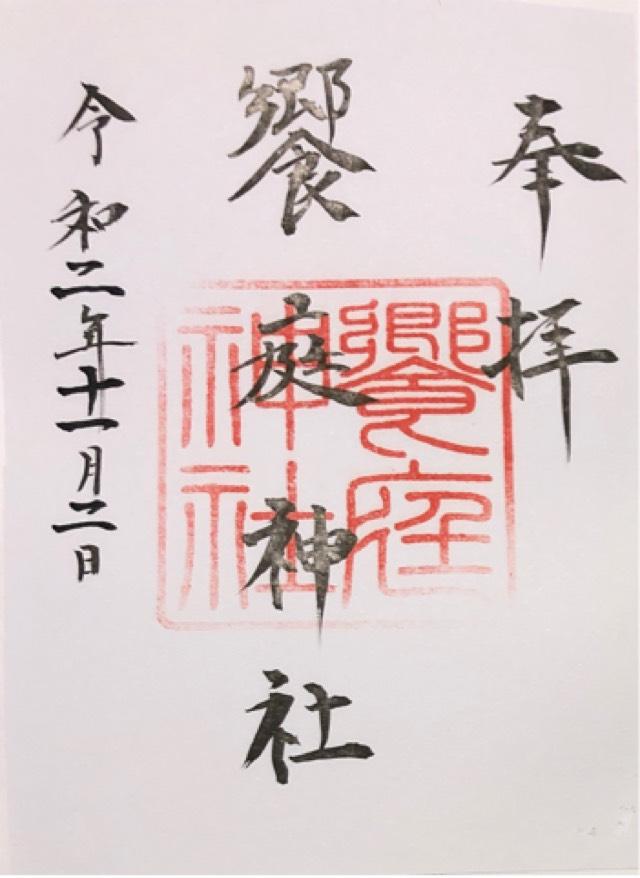 奉拝
饗庭神社
饗庭神社
令和二年十一月二日